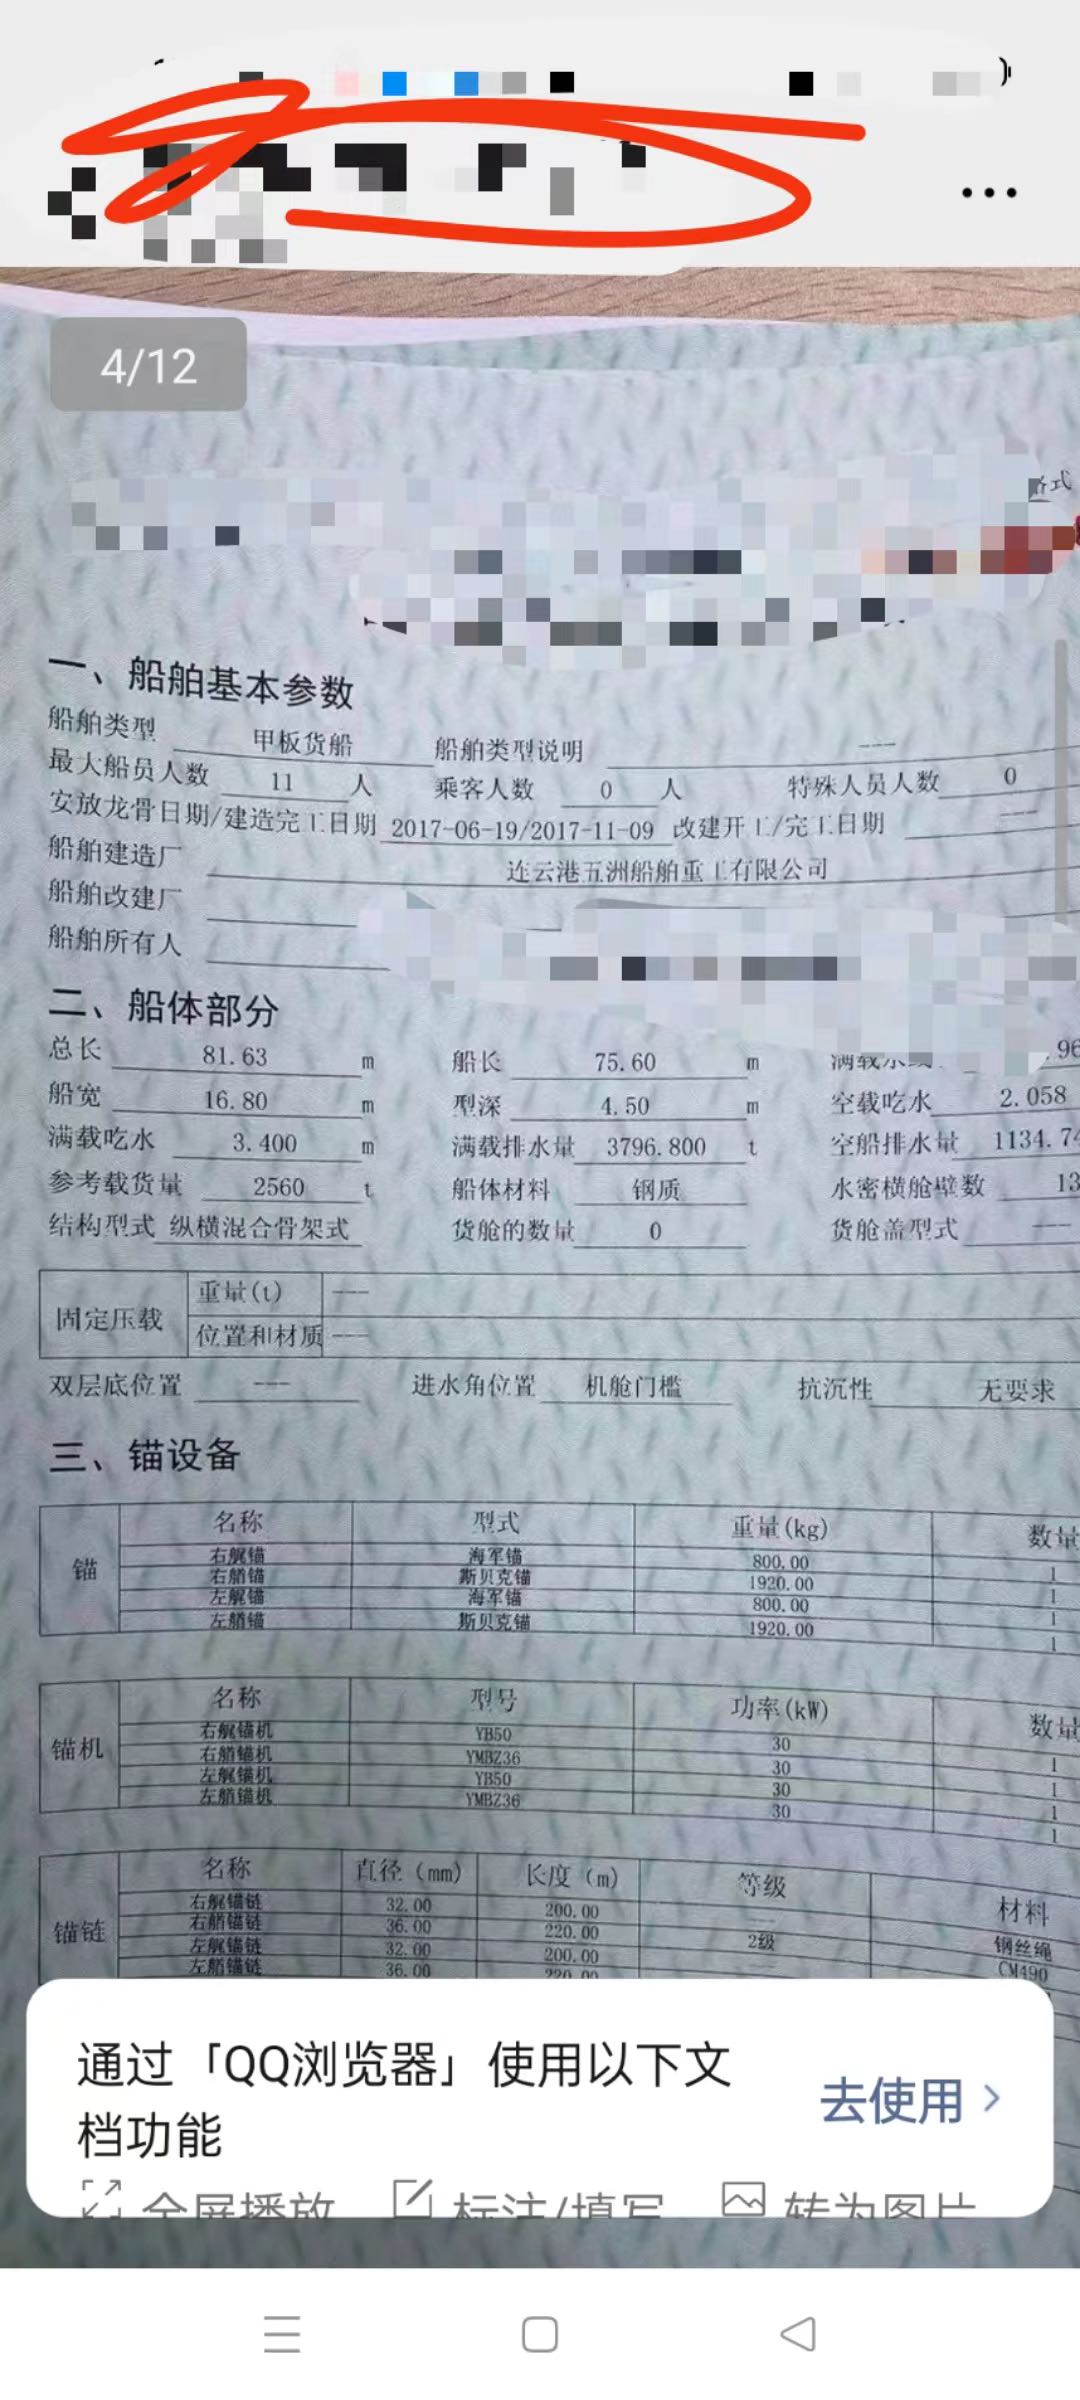 4/12
一、船舶基本参数
船舶类型 甲板货船 船舶类型说明 ---
最大船员人数 11 人 乘客人数 0 人 特殊人员人数 0
安放龙骨日期/建造完工日期 2017-06-19/2017-11-09 改建开工/完工日期 ---
船舶建造厂 连云港五洲船舶重工有限公司
船舶改建厂
船舶所有人
二、船体部分
总长 81.63 m 船长 75.60 m 满载水线
船宽 16.80 m 型深 4.50 m 空载吃水 2.058
满载吃水 3.400 m 满载排水量 3796.800 t 空船排水量 1134.74
参考载货量 2560 t 船体材料 钢质 水密横舱壁数 13
结构型式 纵横混合骨架式 货舱的数量 0 货舱盖型式 ---
固定压载 重量(t) ---
位置和材质 ---
双层底位置 --- 进水角位置 机舱门槛 抗沉性 无要求
三、锚设备
锚 名称 型式 重量(kg) 数量
右艉锚 海军锚 800.00 1
右艏锚 斯贝克锚 1920.00 1
左艉锚 海军锚 800.00 1
左艏锚 斯贝克锚 1920.00 1
锚机 名称 型号 功率(kW) 数量
右艉锚机 YB50 30 1
右艏锚机 YMBZ36 30 1
左艉锚机 YB50 30 1
左艏锚机 YMBZ36 30 1
锚链 名称 直径(mm) 长度(m) 等级 材料
右艉锚链 32.00 200.00 --- 钢丝绳
右艏锚链 36.00 220.00 2级 CM490
左艉锚链 32.00 200.00
左艏锚链 36.00 220.00
通过「QQ浏览器」使用以下文
档功能
去使用
全屏播放 标注/填写 转为图片